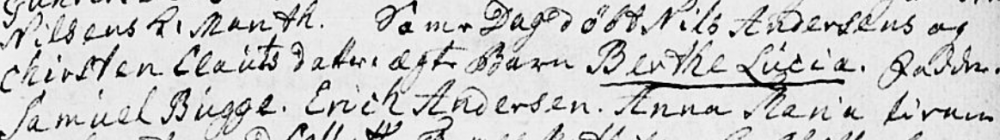 Nilsens L. Manth. Same Dag døbt Nils Andersens og
Chirsten Clauts datter ægte Barn Berthe Lucia. Fadde.
Samuel Bugge. Erich Andersen. Anna Maria